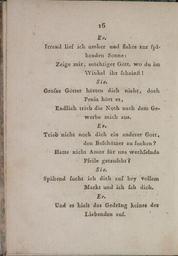 16
Er.
Irrend lief ich umher und flehte zur spä-
henden Sonne:
Zeige mir, mächtiger Gott, wo du im
Winkel ihr scheinst!
Sie.
Grosse Götter hörten dich nicht, doch
Penia hört es,
Endlich trieb die Noth nach dem Ge-
werbe mich aus.
Er.
Trieb nicht noch dich ein anderer Gott,
den Beschützer zu suchen?
Hatte nicht Amor für uns wechselnde
Pfeile getauscht?
Sie.
Spähend sucht ich dich auf bey vollem
Markt und ich sah dich.
Er.
Und es hielt das Gedräng keines der
Liebenden auf.